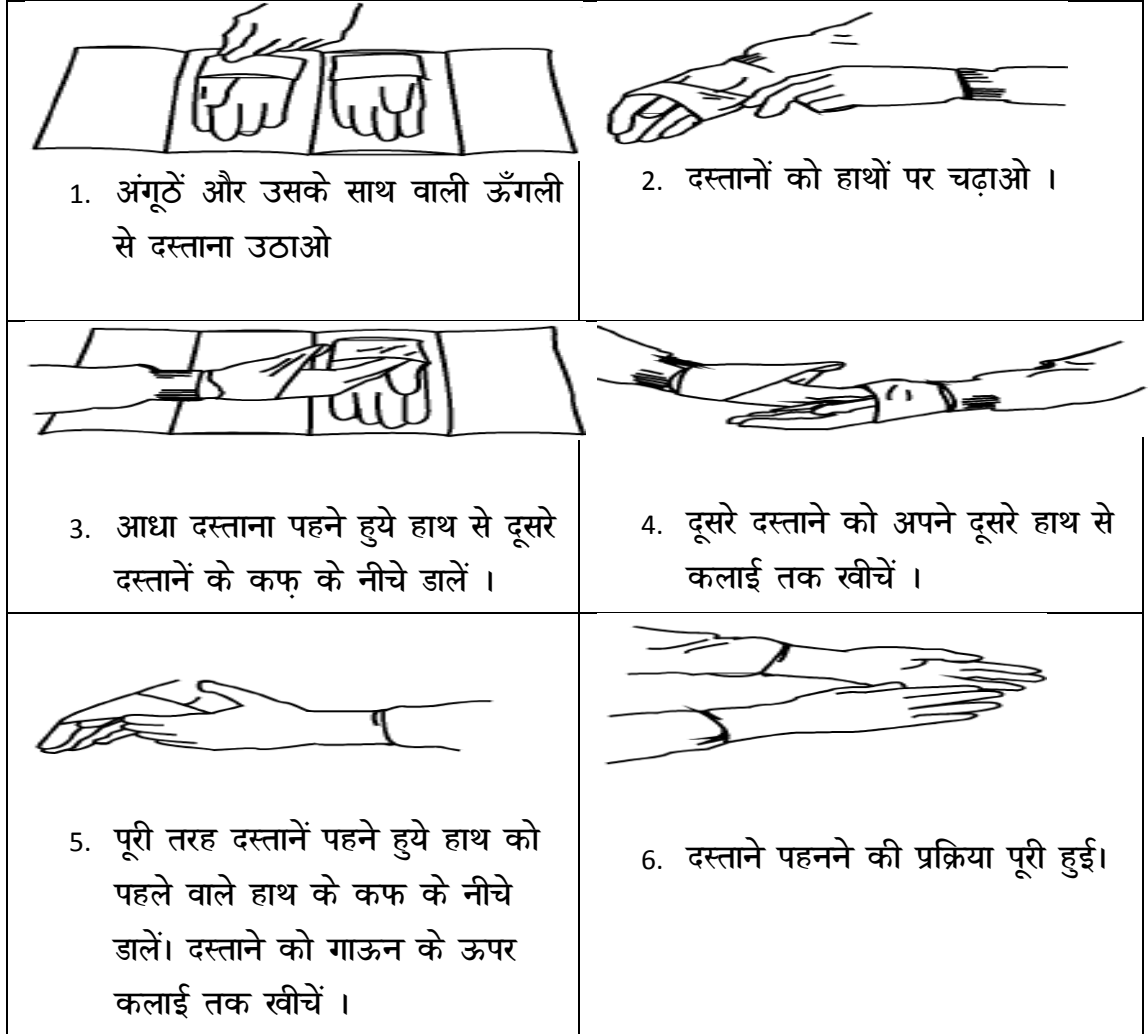 1. अंगूठें और उसके साथ वाली ऊँगली
से दस्ताना उठाओ
2. दस्तानों को हाथों पर चढ़ाओ ।
3. आधा दस्ताना पहने हुये हाथ से दूसरे
दस्तानें के कफ़ के नीचे डालें ।
4. दूसरे दस्ताने को अपने दूसरे हाथ से
कलाई तक खीचें ।
5. पूरी तरह दस्तानें पहने हुये हाथ को
पहले वाले हाथ के कफ के नीचे
डालें। दस्ताने को गाऊन के ऊपर
कलाई तक खीचें ।
6. दस्ताने पहनने की प्रक्रिया पूरी हुई।